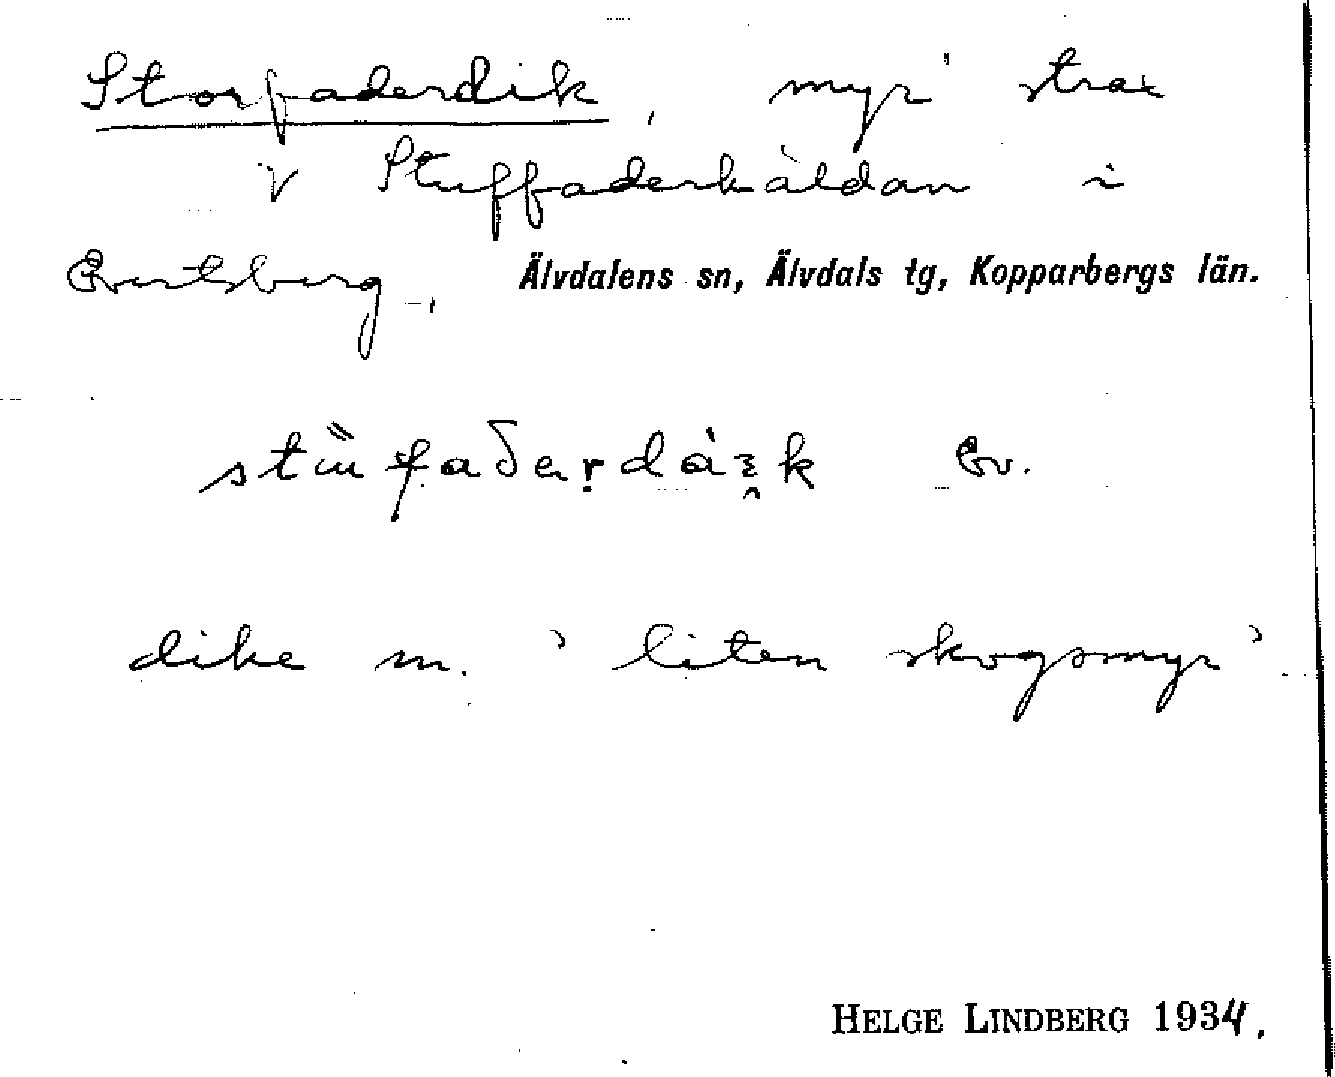 Storfaderdik, myr strax
V Stuffaderkäldan i
Evertsberg, Älvdalens sn, Älvdals tg, Kopparbergs län.
Ev.
dike m. 'liten skogsmyr'
HELGE LINDBERG 1934.